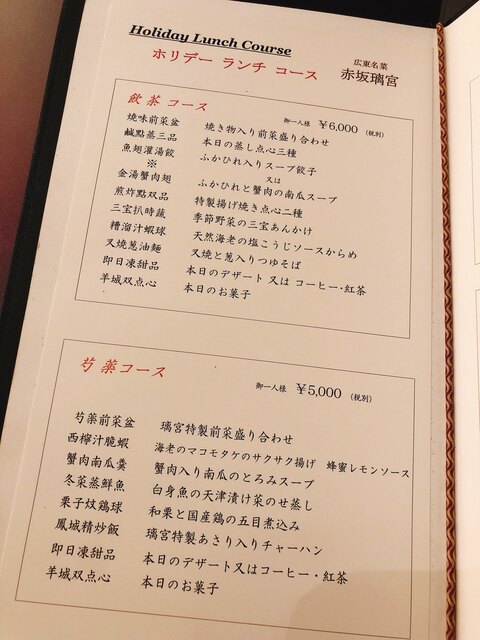 Holiday Lunch Course
ホリデー ランチ コース
広東名菜
赤坂璃宮
飲茶 コース
御一人様 ￥6,000 (税別)
焼味前菜盆 焼き物入り前菜盛り合わせ
鹹點蒸三品 本日の蒸し点心三種
魚翅灌湯餃 ふかひれ入りスープ餃子
※ 又は
金湯蟹肉翅 ふかひれと蟹肉の南瓜スープ
煎炸點双品 特製揚げ焼き点心二種
三宝扒時蔬 季節野菜の三宝あんかけ
糟溜汁蝦球 天然海老の塩こうじソースからめ
叉焼葱油麵 叉焼と葱入りつゆそば
即日凍甜品 本日のデザート 又は コーヒー・紅茶
羊城双点心 本日のお菓子
芍薬コース
御一人様 ￥5,000 (税別)
芍薬前菜盆 璃宮特製前菜盛り合わせ
西檸汁脆蝦 海老のマコモタケのサクサク揚げ 蜂蜜レモンソース
蟹肉南瓜羹 蟹肉入り南瓜のとろみスープ
冬菜蒸鮮魚 白身魚の天津漬け菜のせ蒸し
栗子炆鶏球 和栗と国産鶏の五目煮込み
鳳城精炒飯 璃宮特製あさり入りチャーハン
即日凍甜品 本日のデザート又はコーヒー・紅茶
羊城双点心 本日のお菓子